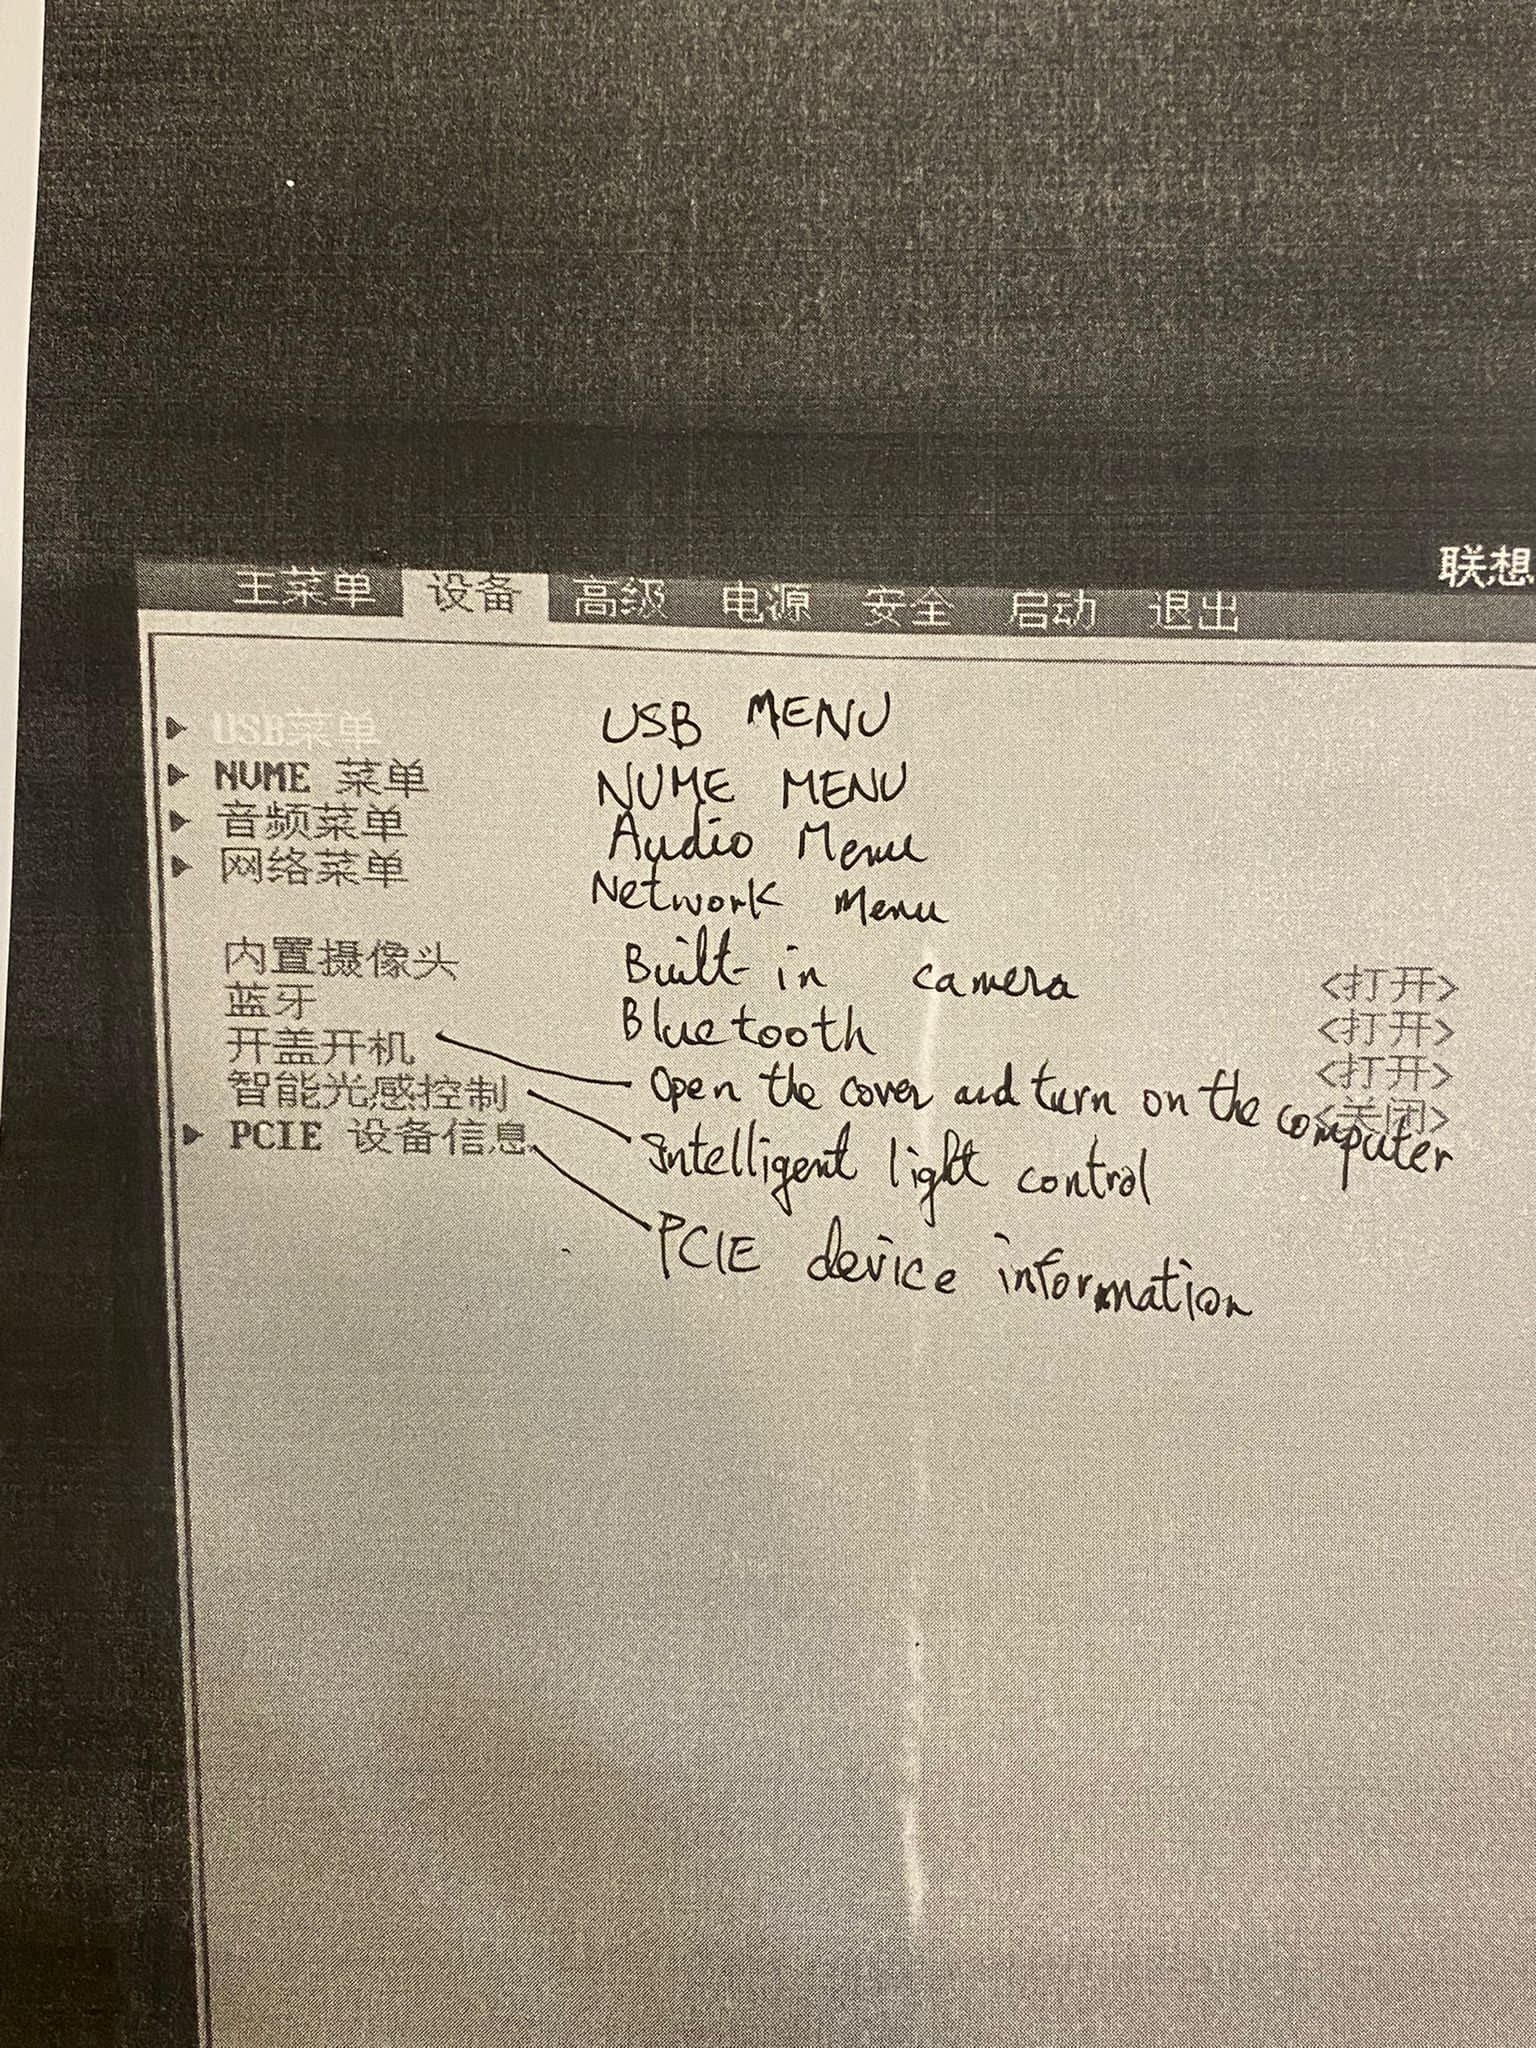 联想
主菜单 设备 高级 电源 安全 启动 退出
USB菜单 USB MENU
NVME 菜单 NVME MENU
音频菜单 Audio Menu
网络菜单 Network Menu
内置摄像头 Built-in camera <打开>
蓝牙 Bluetooth <打开>
开盖开机 Open the cover and turn on the computer <打开>
智能光感控制 Intelligent light control <关闭>
PCIE 设备信息 PCIE device information